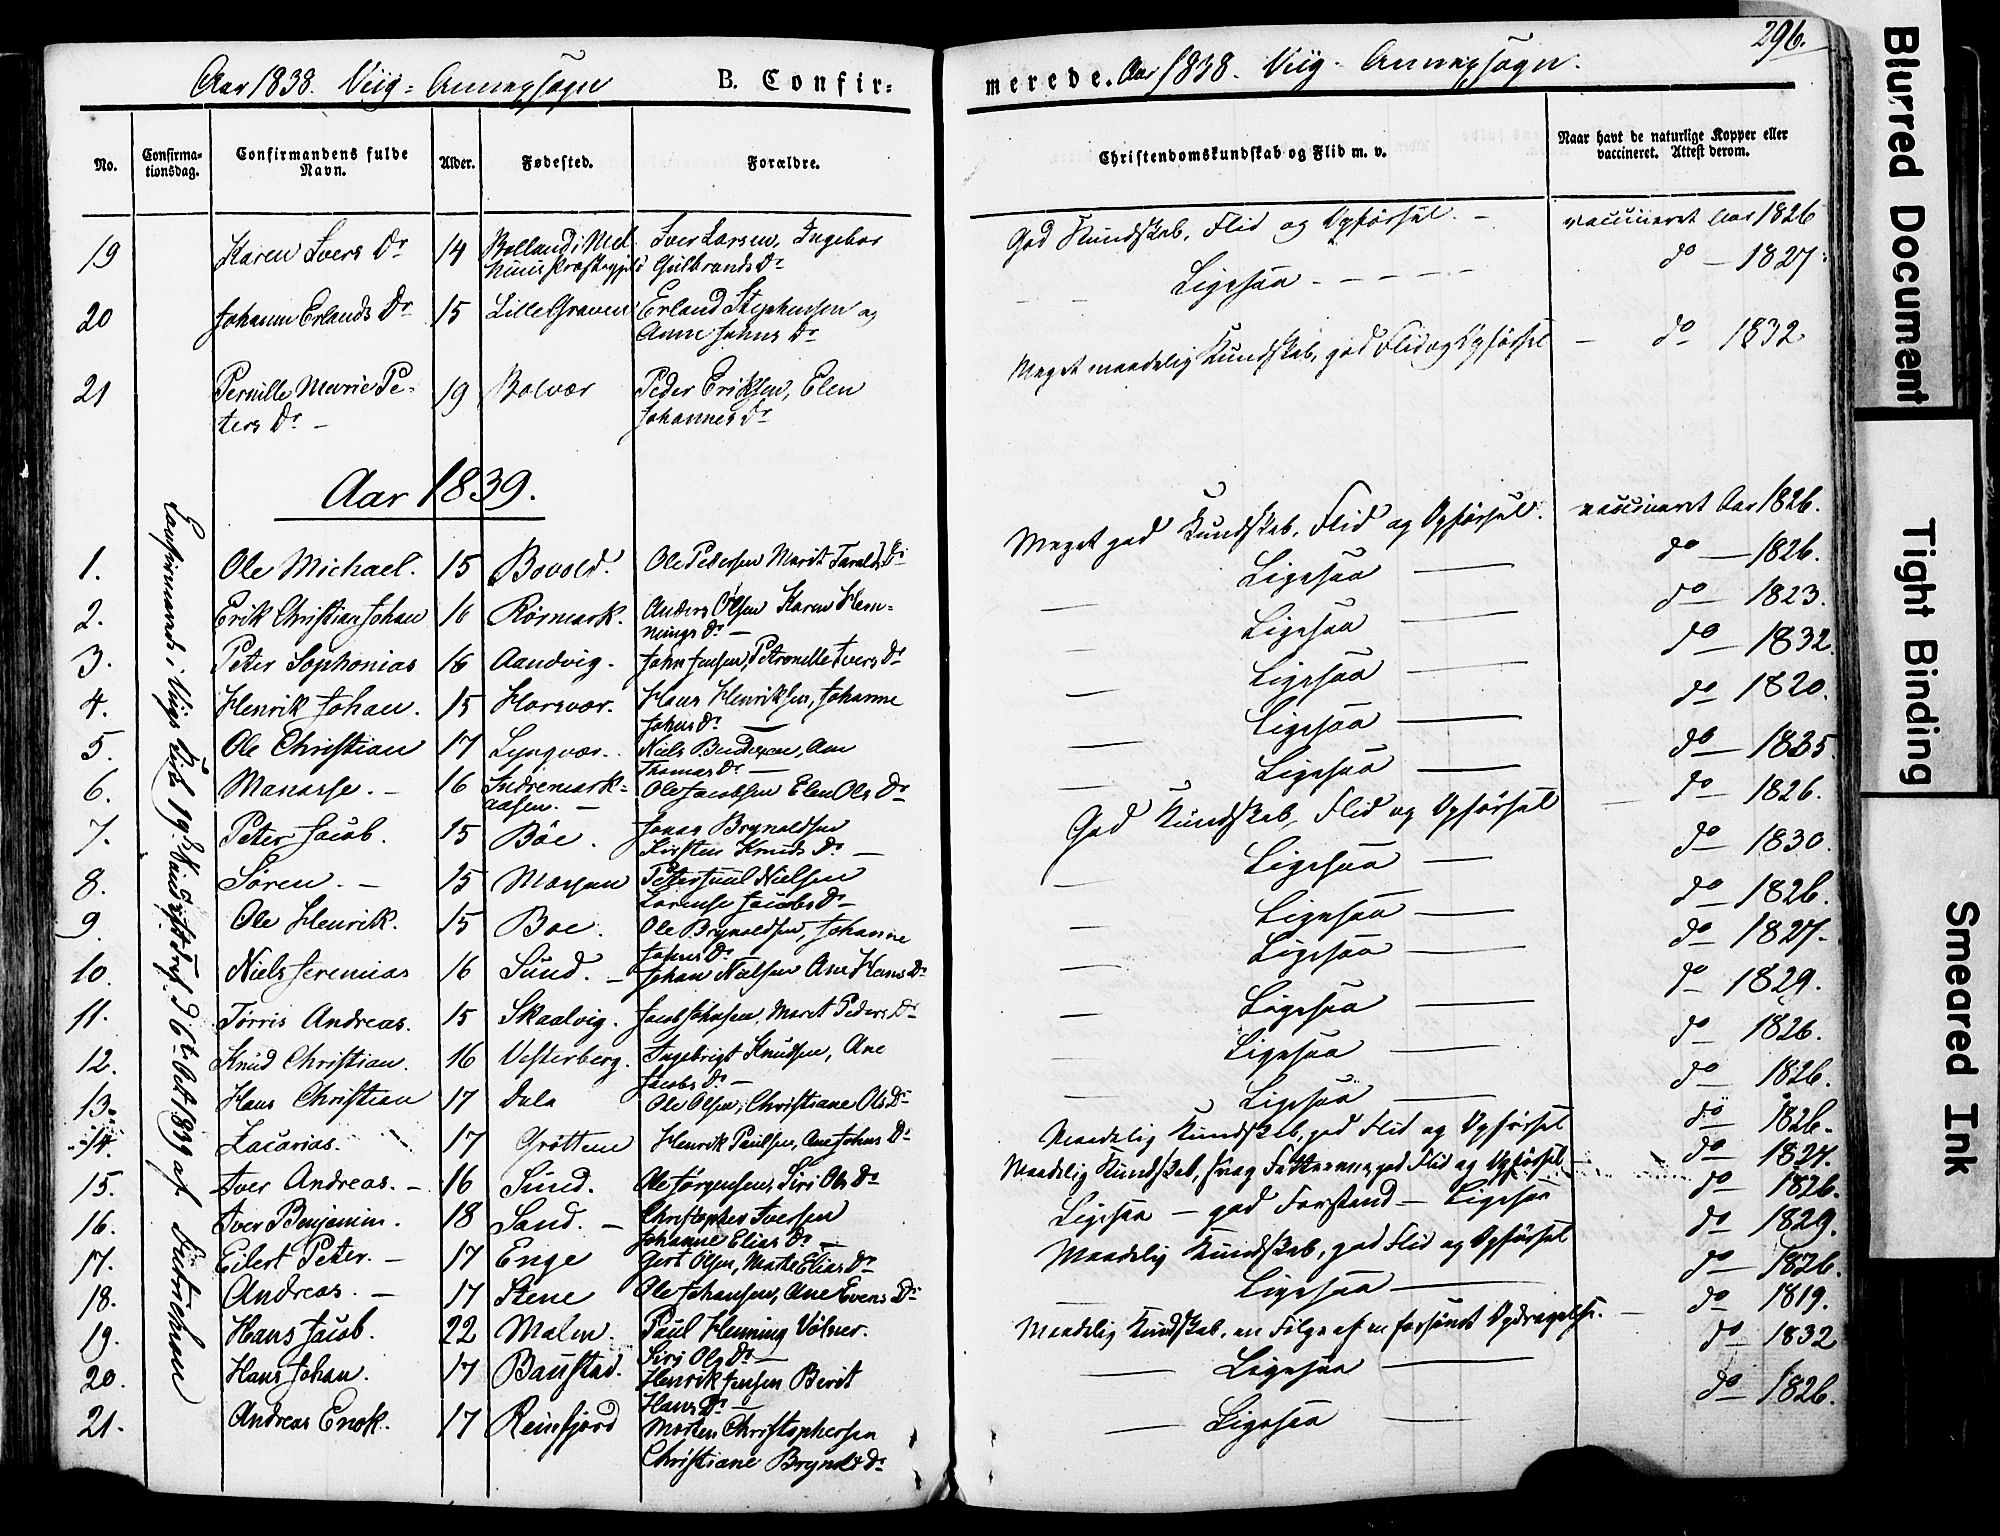 Aar 1838. Viig-Annexsogn
B. Confir-
No.
Confirma-
tionsdag.
Confirmandens fulde
Navn.
Alder.
Fødested.
Forældre.
19 Karen Ivers Dr 14 Iver Larsen, Ingebor
Gulbrands Dr
20 Johanne Erlands Dr 15 Lille Graven Erland Stephensen og
Anne Johns Dr
21 Pernille Marie Pe-
ters Dr - 19 Bolvær Peder Eriksen, Elen
Johannes Dr
Aar 1839.
1. Ole Michael. 15 Bovold. Ole Pedersen Marit Taralds Dr
2. Erik Christian Johan 16 Rørmark. Anders Olsen Karen Hem-
nings Dr -
3. Peter Sophonias 16 Aandvig. John Jensen, Petronelle Ivers Dr
4. Henrik Johan. 15 Horsvær. Hans Henriksen, Johanne
Johns Dr
5. Ole Christian 17 Lyngvær. Niels Ane
Thomas Dr
6. Manasse. - 16 Indremark-
aasen. - Ole Jacobsen Elen Ols Dr
7. Peter Jacob. 15 Böe. Jonas Brynoldsen
Kirsten Knuds Dr
8. Søren. - 15 Mosjøen Nielsen
Lorense Jacobs Dr
9. Ole Henrik. 15 Boe. Ole Brynoldsen, Johanne
Johns Dr
10. Niels Jeremias 16 Sund. - Johan Nielsen Ane Hans Dr
11. Tørris Andreas. 15 Skaalvig. Jacob Johnsen, Maret Peders Dr
12. Knud Christian. 16 Vesterberg. Ingebrigt Knudsen, Ane
Jacobs Dr -
13. Hans Christian 17 Dale Ole Olsen, Christiane Ols Dr
14. Zacarias. 17 Grøttem Henrik Paulsen, Ane Johns Dr
15. Iver Andreas. - 16 Sund. Ole Jörgensen, Siri Ols Dr
16. Iver Benjamin. 18 Sand. - Christopher Iversen
Johanne Elias Dr
17. Eilert Peter. - 17 Enge Gert Olsen, Marte Elias Dr
18. Andreas. - 17 Stene Ole Johansen, Ane Evens Dr
19. Hans Jacob. 22 Malm. Paul Heming Vølner.
Siri Ols Dr -
20. Hans Johan. 17 Baustad. Henrik Jensen Berit
Hans Dr -
21. Andreas Enok. 17 Reinfjord Morten Christophersen
Christiane Brynolds Dr
Confirmerede i Viigs Kirke 19de Sønd. eft. Tref. d. 6te Oct. 1839 af
296.
merede. Aar 1838. Viig-Annexsogn.
Christendomskundskab og Flid m. v.
Naar havt de naturlige Kopper eller
vaccineret. Attest derom.
God Kundskab, Flid og Opførsel. - vaccineret Aar 1826
Ligesaa - - - - do - 1827.
Meget maadelig Kundskab, god Flid og Opførsel - do - 1832
Meget god Kundskab, Flid og Opførsel. vaccineret Aar 1826.
Ligesaa do - 1826.
Ligesaa do - 1823.
Ligesaa do - 1832.
Ligesaa do - 1820.
Ligesaa do - 1835.
God Kundskab, Flid og Opførsel do - 1826.
Ligesaa do - 1830.
Ligesaa do - 1826.
Ligesaa do - 1827.
Ligesaa do - 1829.
Ligesaa do - 1826.
Ligesaa do - 1826.
Maadelig Kundskab, god Flid og Opførsel do - 1826.
Maadelig Kundskab, svag Fatteevne god Flid og Opførsel do - 1827.
Ligesaa - god Forstand - Ligesaa do - 1826.
Maadelig Kundskab, god Flid og Opførsel do - 1829.
Ligesaa do - 1826.
Maadelig Kundskab, en Følge af en forsømt Opdragelse. - do - 1819.
Ligesaa do - 1832
Ligesaa do - 1826.
Blurred Document
Tight Binding
Smeared Ink